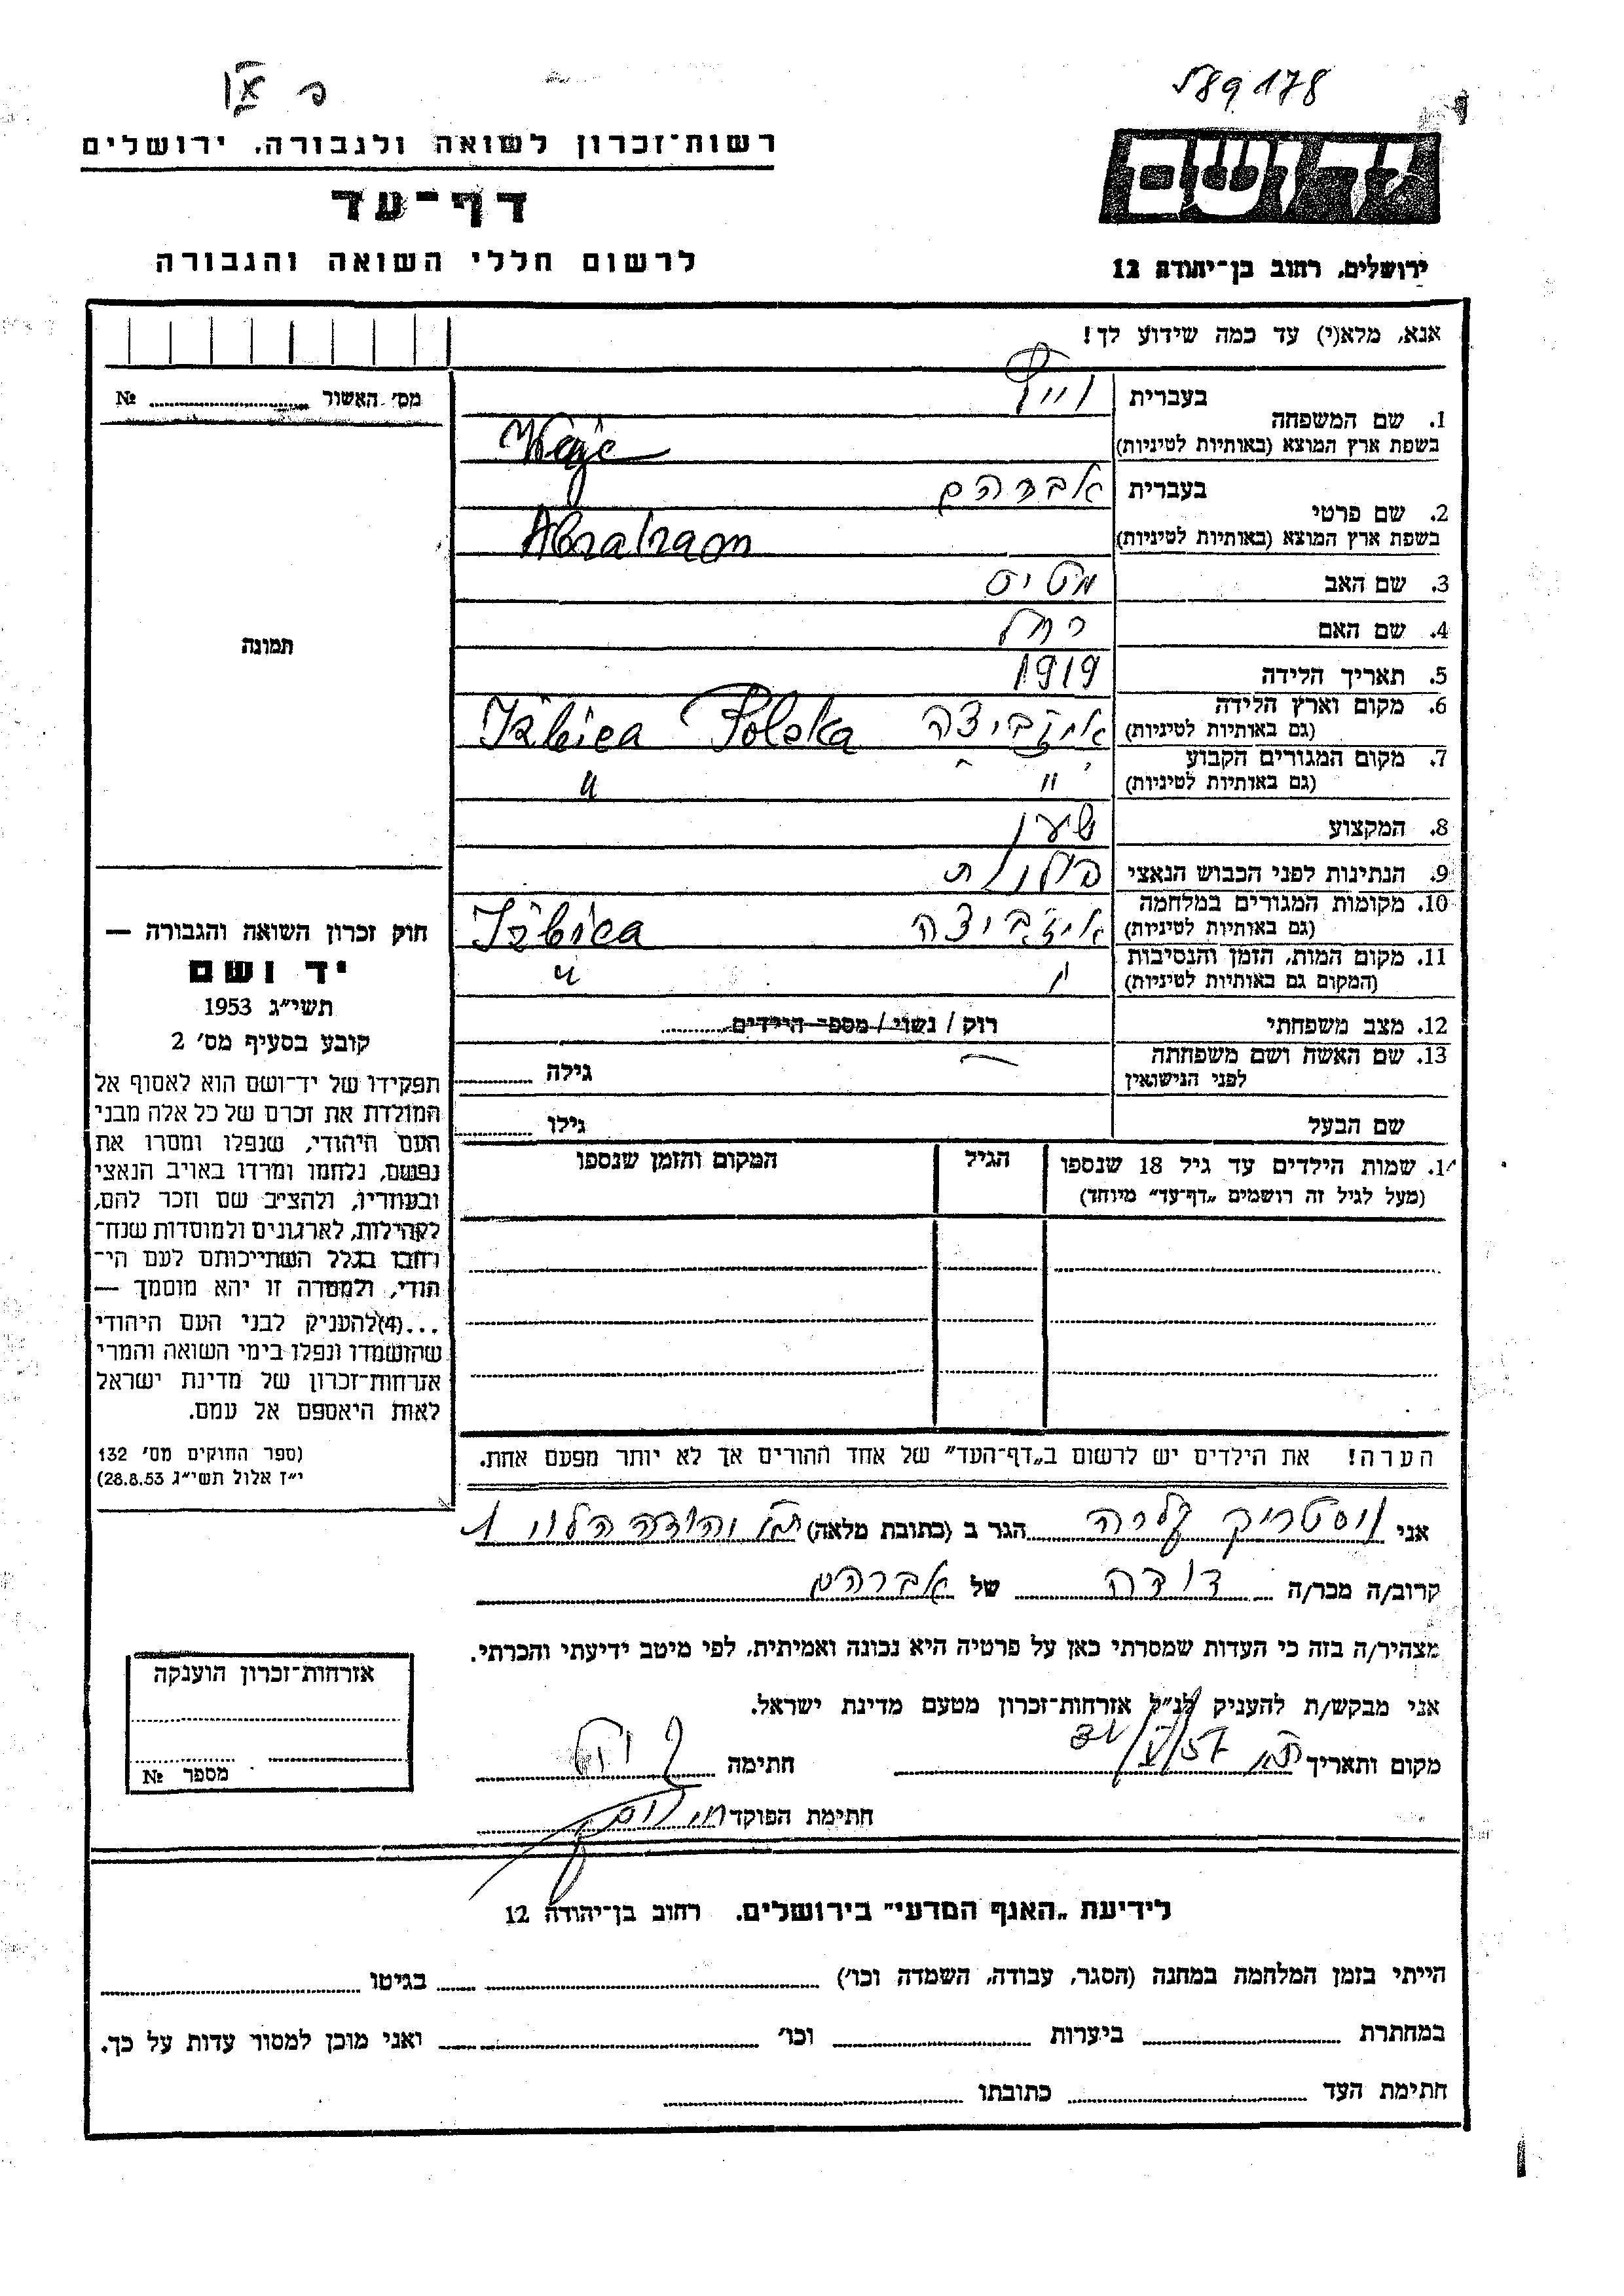 589178
רשות־זכרון לשואה ולגבורה, ירושלים
דף־עד
לרשום חללי השואה והגבורה
ירושלים, רחוב בן־יהודה 12
אנא, מלא(י) עד כמה שידוע לך!
מס׳ האשור № 
1. שם המשפחה בעברית
בשפת ארץ המוצא (באותיות לטיניות)
2. שם פרטי בעברית אברהם
בשפת ארץ המוצא (באותיות לטיניות) Abraham
3. שם האב מטיס
4. שם האם רחל
5. תאריך הלידה 1919
6. מקום וארץ הלידה (גם באותיות לטיניות) איזביצה Izbica Polska
7. מקום המגורים הקבוע (גם באותיות לטיניות) " "
8. המקצוע שען
9. הנתינות לפני הכבוש הנאצי פולנית
10. מקומות המגורים במלחמה (גם באותיות לטיניות) איזביצה Izbica
11. מקום המות, הזמן והנסיבות (המקום גם באותיות לטיניות) " "
12. מצב משפחתי רוק / נשוי / מספר הילדים
13. שם האשה ושם משפחתה לפני הנישואין גילה
שם הבעל גילו
תמונה
חוק זכרון השואה והגבורה —
יד ושם
תשי״ג 1953
קובע בסעיף מס׳ 2
תפקידו של יד־ושם הוא לאסוף אל
המולדת את זכרם של כל אלה מבני
העם היהודי, שנפלו ומסרו את
נפשם, נלחמו ומרדו באויב הנאצי
ובעוזריו, ולהציב שם וזכר להם,
לקהילות, לארגונים ולמוסדות שנח־
רבו בגלל השתייכותם לעם הי־
הודי, ולמטרה זו יהא מוסמך —
...(4)להעניק לבני העם היהודי
שהושמדו ונפלו בימי השואה והמרי
אזרחות־זכרון של מדינת ישראל
לאות היאספם אל עמם.
(ספר החוקים מס׳ 132
י״ז אלול תשי״ג 28.8.53)
שמות הילדים עד גיל 18 שנספו הגיל המקום והזמן שנספו
(מעל לגיל זה רושמים „דף־עד״ מיוחד)
הערה! את הילדים יש לרשום ב„דף־העד״ של אחד ההורים אך לא יותר מפעם אחת.
אני הגר ב (כתובת מלאה) ת״א יהודה הלוי
קרוב/ה מכר/ה דודה של אברהם
מצהיר/ה בזה כי העדות שמסרתי כאן על פרטיה היא נכונה ואמיתית, לפי מיטב ידיעתי והכרתי.
אני מבקש/ת להעניק לנ״ל אזרחות־זכרון מטעם מדינת ישראל.
מקום ותאריך ת״א חתימה
חתימת הפוקד
אזרחות־זכרון הוענקה
מספר №
לידיעת „האגף המדעי״ בירושלים, רחוב בן־יהודה 12
הייתי בזמן המלחמה במחנה (הסגר, עבודה, השמדה וכו׳) בגיטו
במחתרת ביערות וכו׳ ואני מוכן למסור עדות על כך.
חתימת העד כתובתו